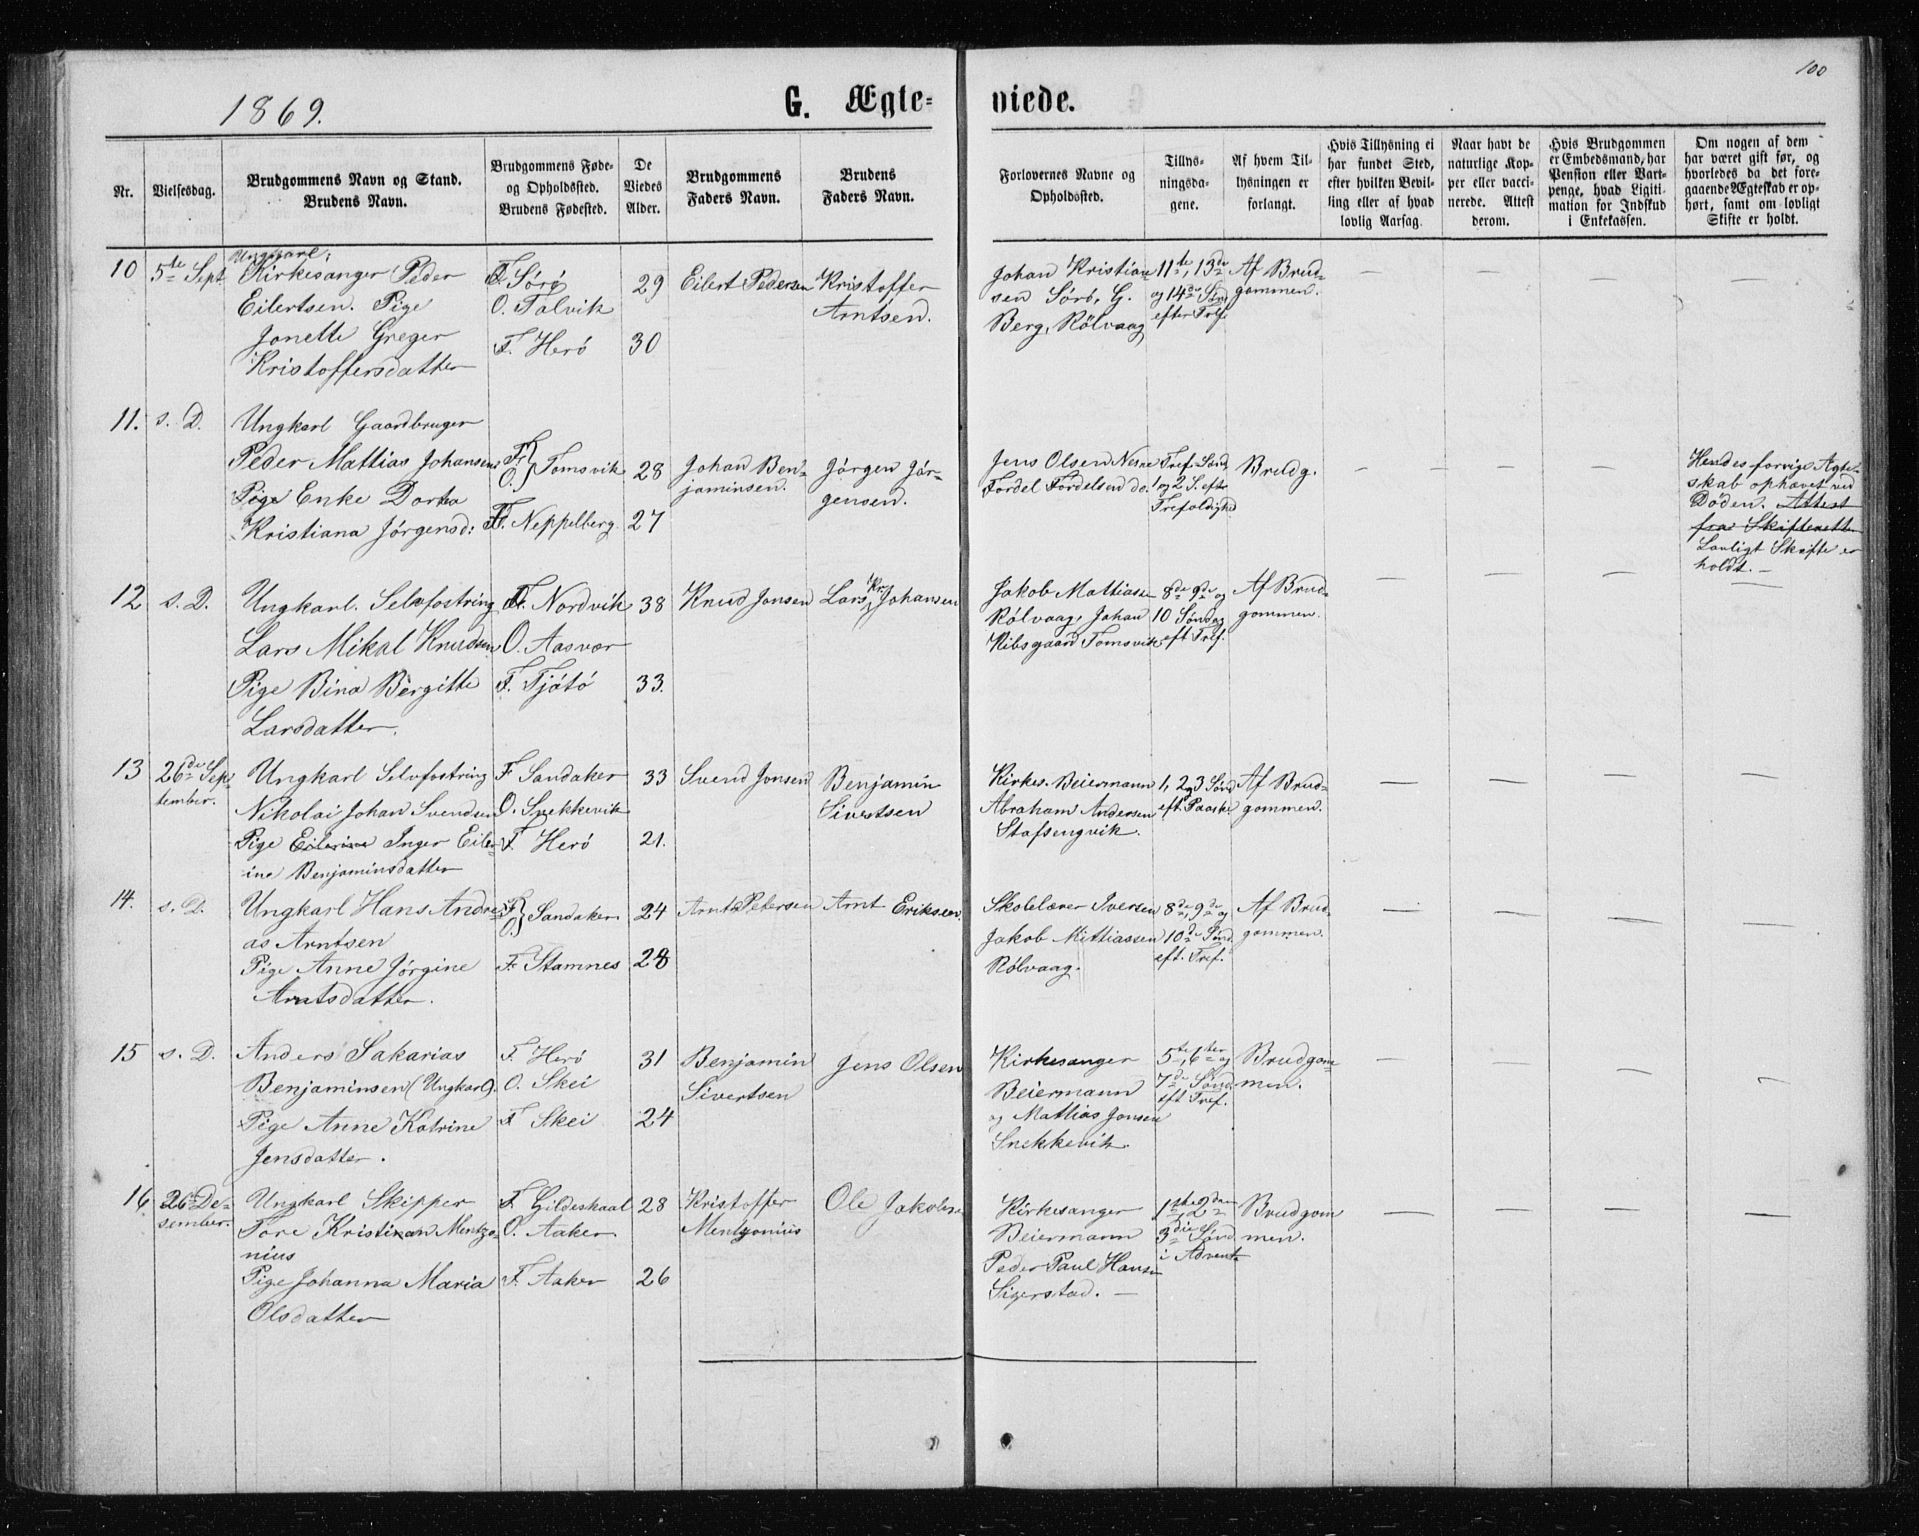 100
1869.
G. Ægte-
viede.
Nr.
Vielsesdag.
Brudgommens Navn og Stand.
Brudens Navn.
Brudgommens Føde-
og Opholdsted.
Brudens Fødested.
De
Viedes
Alder.
Brudgommens
Faders Navn.
Brudens
Faders Navn.
Forlovernes Navne og
Opholdssted.
Tillys-
ningsda-
gene.
Af hvem Til-
lysningen er
forlangt.
Hvis Tillysning ei
har fundet Sted,
efter hvilken Bevil-
ling eller af hvad
lovlig Aarsag.
Naar havt de
naturlige Kop-
per eller vacci-
nerede. Attest
derom.
Hvis Brudgommen
er Embedsmand, har
Pension eller Vart-
penge, hvad Ligiti-
mation for Indskud
i Enkekassen.
Om nogen af dem
har været gift før, og
hvorledes da det fore-
gaaende Ægteskab er op-
hørt, samt om lovligt
Skifte er holdt.
10
5te Sept
Ungkarl,
Kirkesanger Peder
Eilertsen. Pige
Jonette Greger
Kristoffersdatter
F. Sørø
O. Talvik
F. Herø
29
30
Eilert Pedersen
Kristoffer
Arntsen.
Johan Kristian-
sen Sørø, G.
Berg, Rølvaag
11te, 13de
og 14de Sønd
efter Tref.
Af Brud-
gommen.
— — — —
11.
s. D.
Ungkarl Gaardbruger
Peder Mattias Johansen
Pige Enke Dorthea
Kristiana Jørgensd:
F. O. } Tomsvik
F. Neppelberg.
28
27
Johan Ben-
jaminsen.
Jørgen Jør-
gensen.
Jens Olsen Nesne
Fordel Fordelsen do.
Tref. Sønd
1 og 2 S. efter
Trefoldighd
Brudg.
— — —
Hendes forrige Ægte-
skab ophævet ved
Døden. Attest
fra Skifterett
Lovligt Skifte er
holdt. —
12
s. D.
Ungkarl. Selvfostring
Lars Mikal Knudsen
Pige Bina Bergitte
Larsdatter.
F. Nordvik
O. Aasvær
F. Tjøtø
38
33.
Knud Jonsen
Lars Kr. Johansen
Jakob Mattiasen
Rølvaag, Johan
Kibsgaard Tomsvik
8de 9de og
10 Søndag
eft. Tref.
Af Brud-
gommen.
— — — —
13
26de Sep-
tember.
Ungkarl Selvfostring
Nikolai Johan Svendsen
Pige Eilerine Inger Eiler-
ine Benjaminsdatter
F Sandaker
O. Snekkevik
F. Herø
33
21.
Svend Jonsen
Benjamin
Sivertsen
Kirkes. Beiermann
Abraham Andersen
Stafsengvik.
1, 2 og 3 Sønd
eft. Paaske
Af Brud-
gommen.
— — — —
14.
s. D.
Ungkarl Hans Andre-
as Arntsen
Pige Anne Jørgine
Arntsdatter.
F. O. } Sandaker
F. Stamnes
24
28
Arnt Petersen
Arnt Eriksen
Skolelærer Iversen
Jakob Mittiassen
Rølvaag.
8de, 9de og
10de Sønd.
eft. Tref.
Af Brud-
gommen.
— — — —
15
s. D.
Anders Sakarias
Benjaminsen (Ungkarl).
Pige Anne Katrine
Jensdatter.
F. Herø
O. Skei
F. Skei
31
24
Benjamin
Sivertsen
Jens Olsen
Kirkesanger
Beiermann
og Mattias Jonsen
Snekkevik
5te, 6te og
7de Sønd.
eft Tref.
Brudgom-
men.
— — — —
16
26 De-
sember.
Ungkarl Skipper
Tore Kristian Mentzo-
nius
Pige Johanna Maria
Olsdatter
F. Gildeskaal
O. Aaker
F. Aaker
28
26
Kristoffer
Mentzonius
Ole Jakobsen
Kirkesanger
Beiermann
Peder Paul Hansen
Sigerstad. —
1ste, 2den
3die Sønd.
i Advent
Brudgom
men.
— — — —